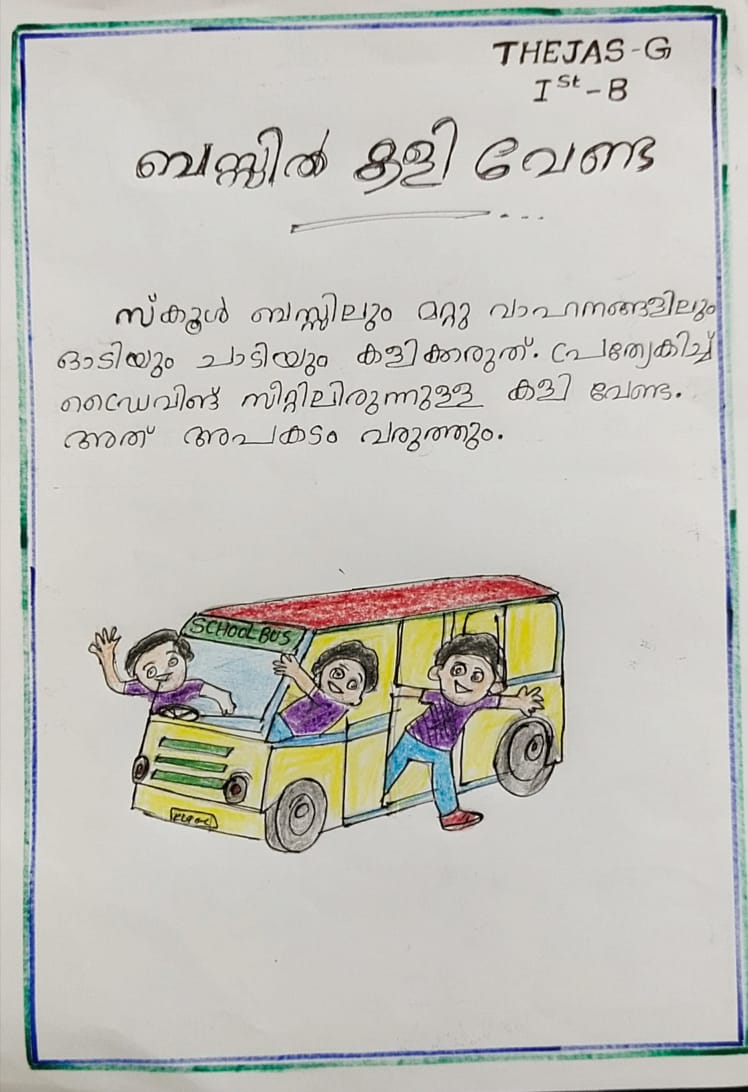 THEJAS-G
Ist-B
ബസ്സിൽ കളി വേണ്ട
സ്കൂൾ ബസ്സിലും മറ്റു വാഹനങ്ങളിലും
ഓടിയും ചാടിയും കളിക്കരുത്. പ്രത്യേകിച്ച്
ഡ്രൈവിങ്ങ് സീറ്റിലിരുന്നുള്ള കളി വേണ്ട.
അത് അപകടം വരുത്തും.
SCHOOL BUS